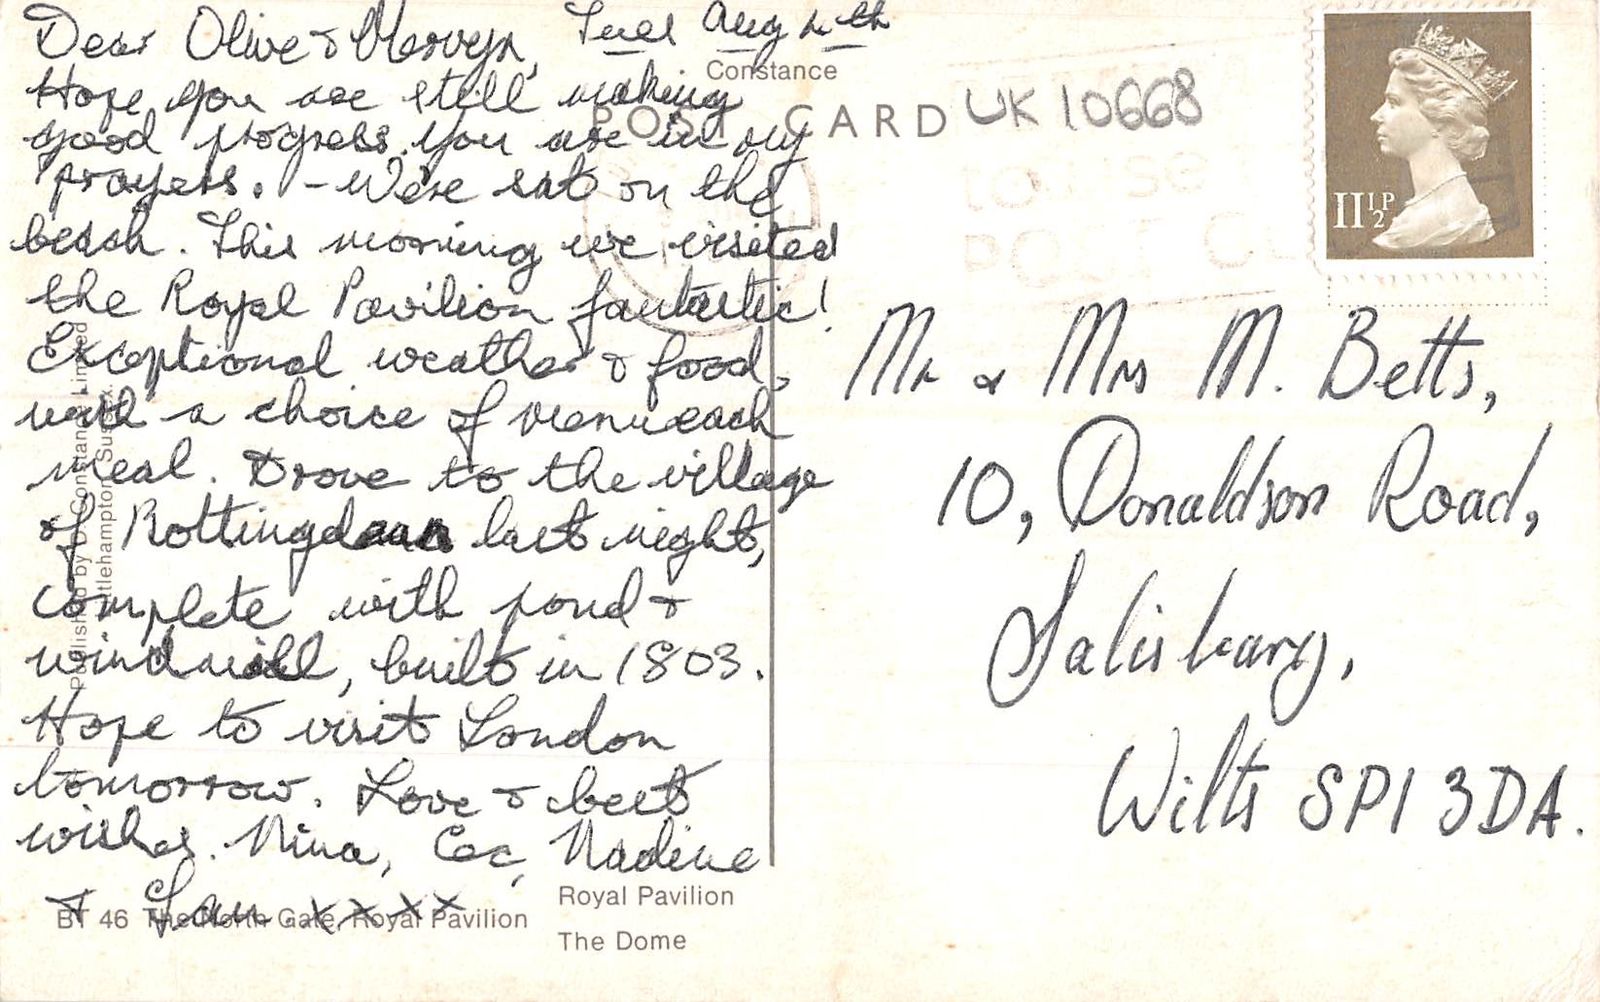 Dear Olive & Mervyn, Tues Aug 4th
Hope you are still making
good progress. You are in my
prayers. - We're sat on the
beach. This morning we visited
the Royal Pavilion fantastic!
Exceptional weather & food,
with a choice of menu each
meal. Drove to the village
of Rottingdean last night,
complete with pond &
windmill, built in 1803.
Hope to visit London
tomorrow. Love & best
wishes. Nina, Cec, Nadine
& Ian. x x x x
Constance
POST CARD
UK 10668
11½P
Mr & Mrs M. Betts,
10, Donaldson Road,
Salisbury,
Wilts SP1 3DA.
Published by D. Constance Limited
Littlehampton, Sussex.
BT 46 The North Gate, Royal Pavilion
Royal Pavilion
The Dome